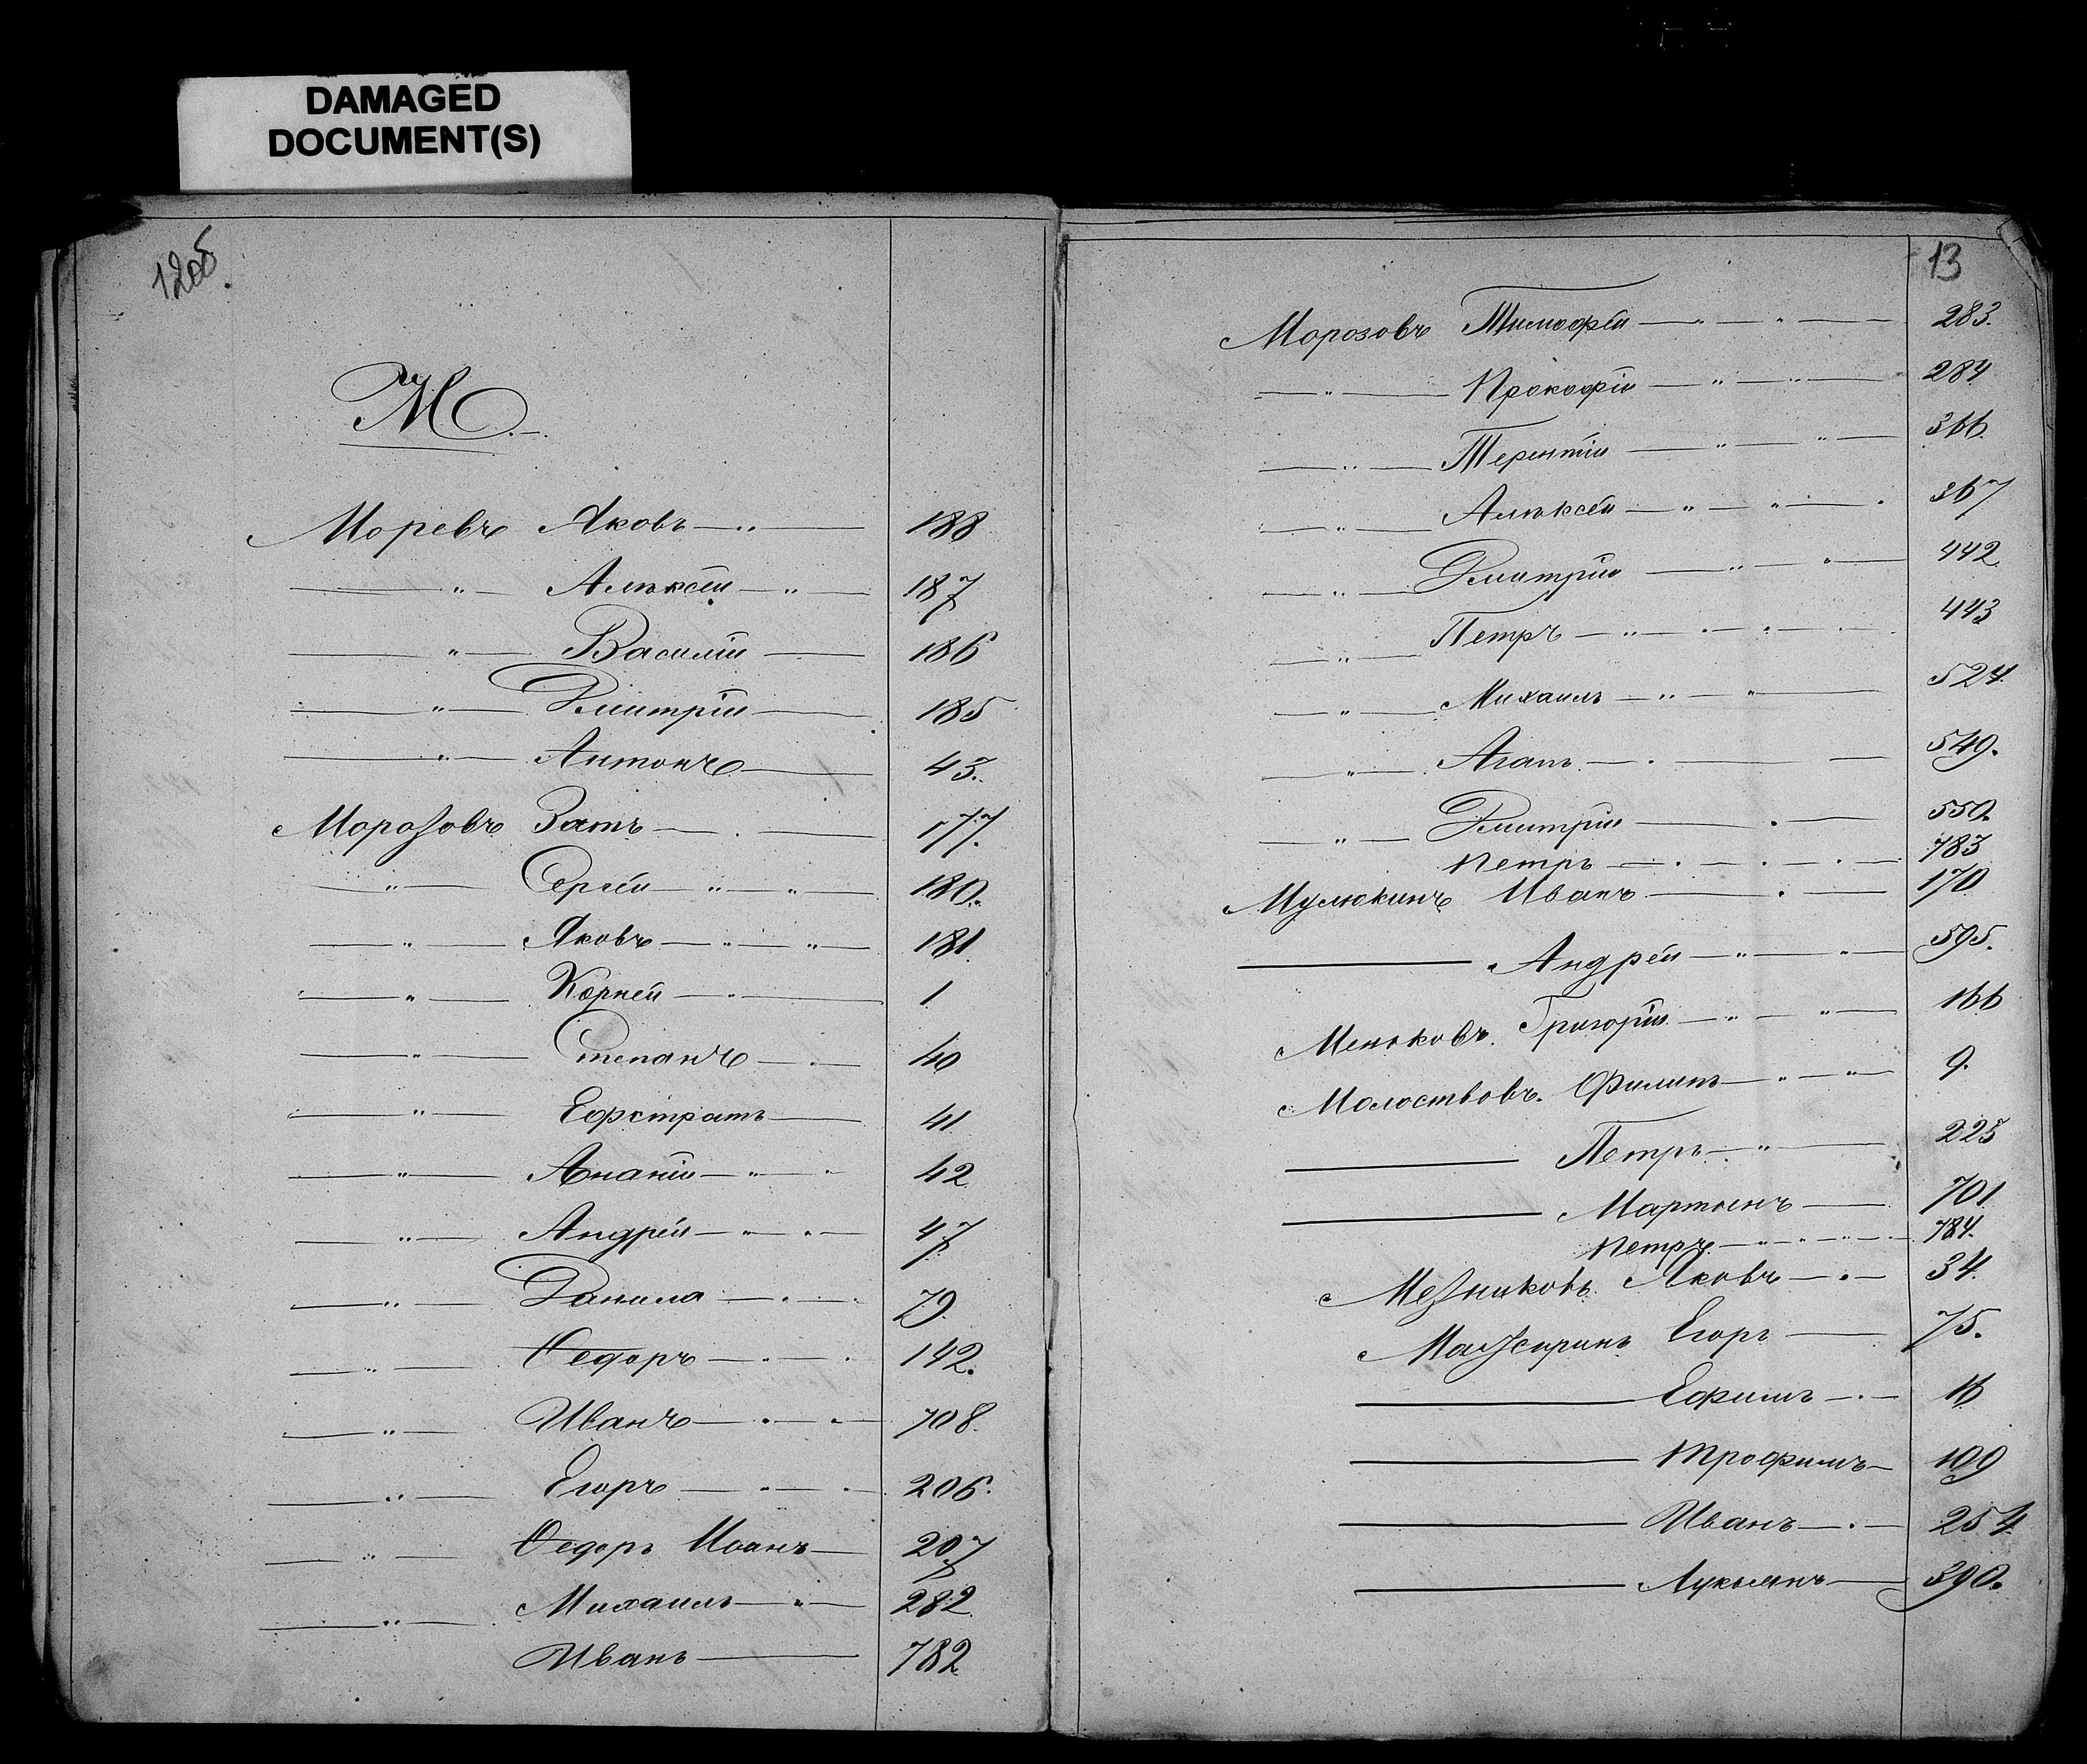 DAMAGED
DOCUMENT(S)
12об.
М.
Моревъ Яковъ — „ — 188
— „ — Алексѣй — „ — 187
— „ — Василій — 186
— „ — Дмитрій — 185
— „ — Антонъ — 43.
Морозовъ Зотъ — . — 177.
— „ — Сергѣй — „ — „ — 180.
— „ — Яковъ — „ — „ — 181
— „ — Корней — „ — 1
— „ — Степанъ — . — 40
— „ — Ефстратъ — 41
— „ — Ананій — „ — „ 42
— „ — Андрей — „ — „ — 47
— „ — Данила — . — . 79.
— „ — Ѳедоръ — . — . 142.
— „ — Иванъ — . — . — 708.
— „ — Егоръ — „ — . — 206.
— „ — Ѳедоръ Иванъ — 207
— „ — Михаилъ — „ — 282
Иванъ — 782
13
Морозовъ Тимофѣй — „ — „ — 283.
— „ — Прокофій — „ — „ — 284
— „ — Терентій — „ — „ — 366.
— „ — Алексѣй — „ — „ — . 367
— „ — Дмитрій — „ — „ — 442
— „ — Петръ — „ — . — . — . 443
— „ — Михаилъ — „ — „ — 524.
— „ — Агапъ — . — — 549.
— „ — Дмитрій — . — 550.
Петръ — . — . — . — 783
Мулюкинъ Иванъ — . — 170
— Андрей — „ — „ — 595.
Меньковъ. Григорій. — „ — „ — 166
Молоствовъ. Филипъ — „ — „ — 9.
— Петръ — „ — 225
— Мартынъ — 701
Петръ — „ — „ — „ — 784.
Мезниковъ Яковъ — . — 34.
Егоръ — 75.
— Ефимъ — . — 16
— Трофимъ — 109
— Иванъ — . — 254
— Лукьянъ — 390.